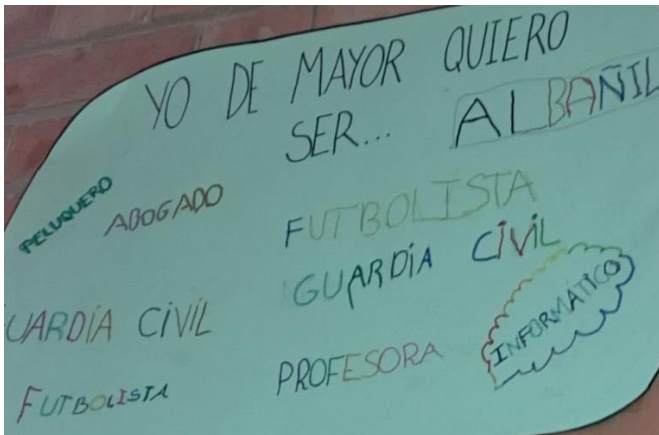 YO DE MAYOR QUIERO
SER... ALBAÑIL
PELUQUERO
ABOGADO
FUTBOLISTA
GUARDIA CIVIL
UARDIA CIVIL
PROFESORA
INFORMÁTICO
FUTBOLISTA